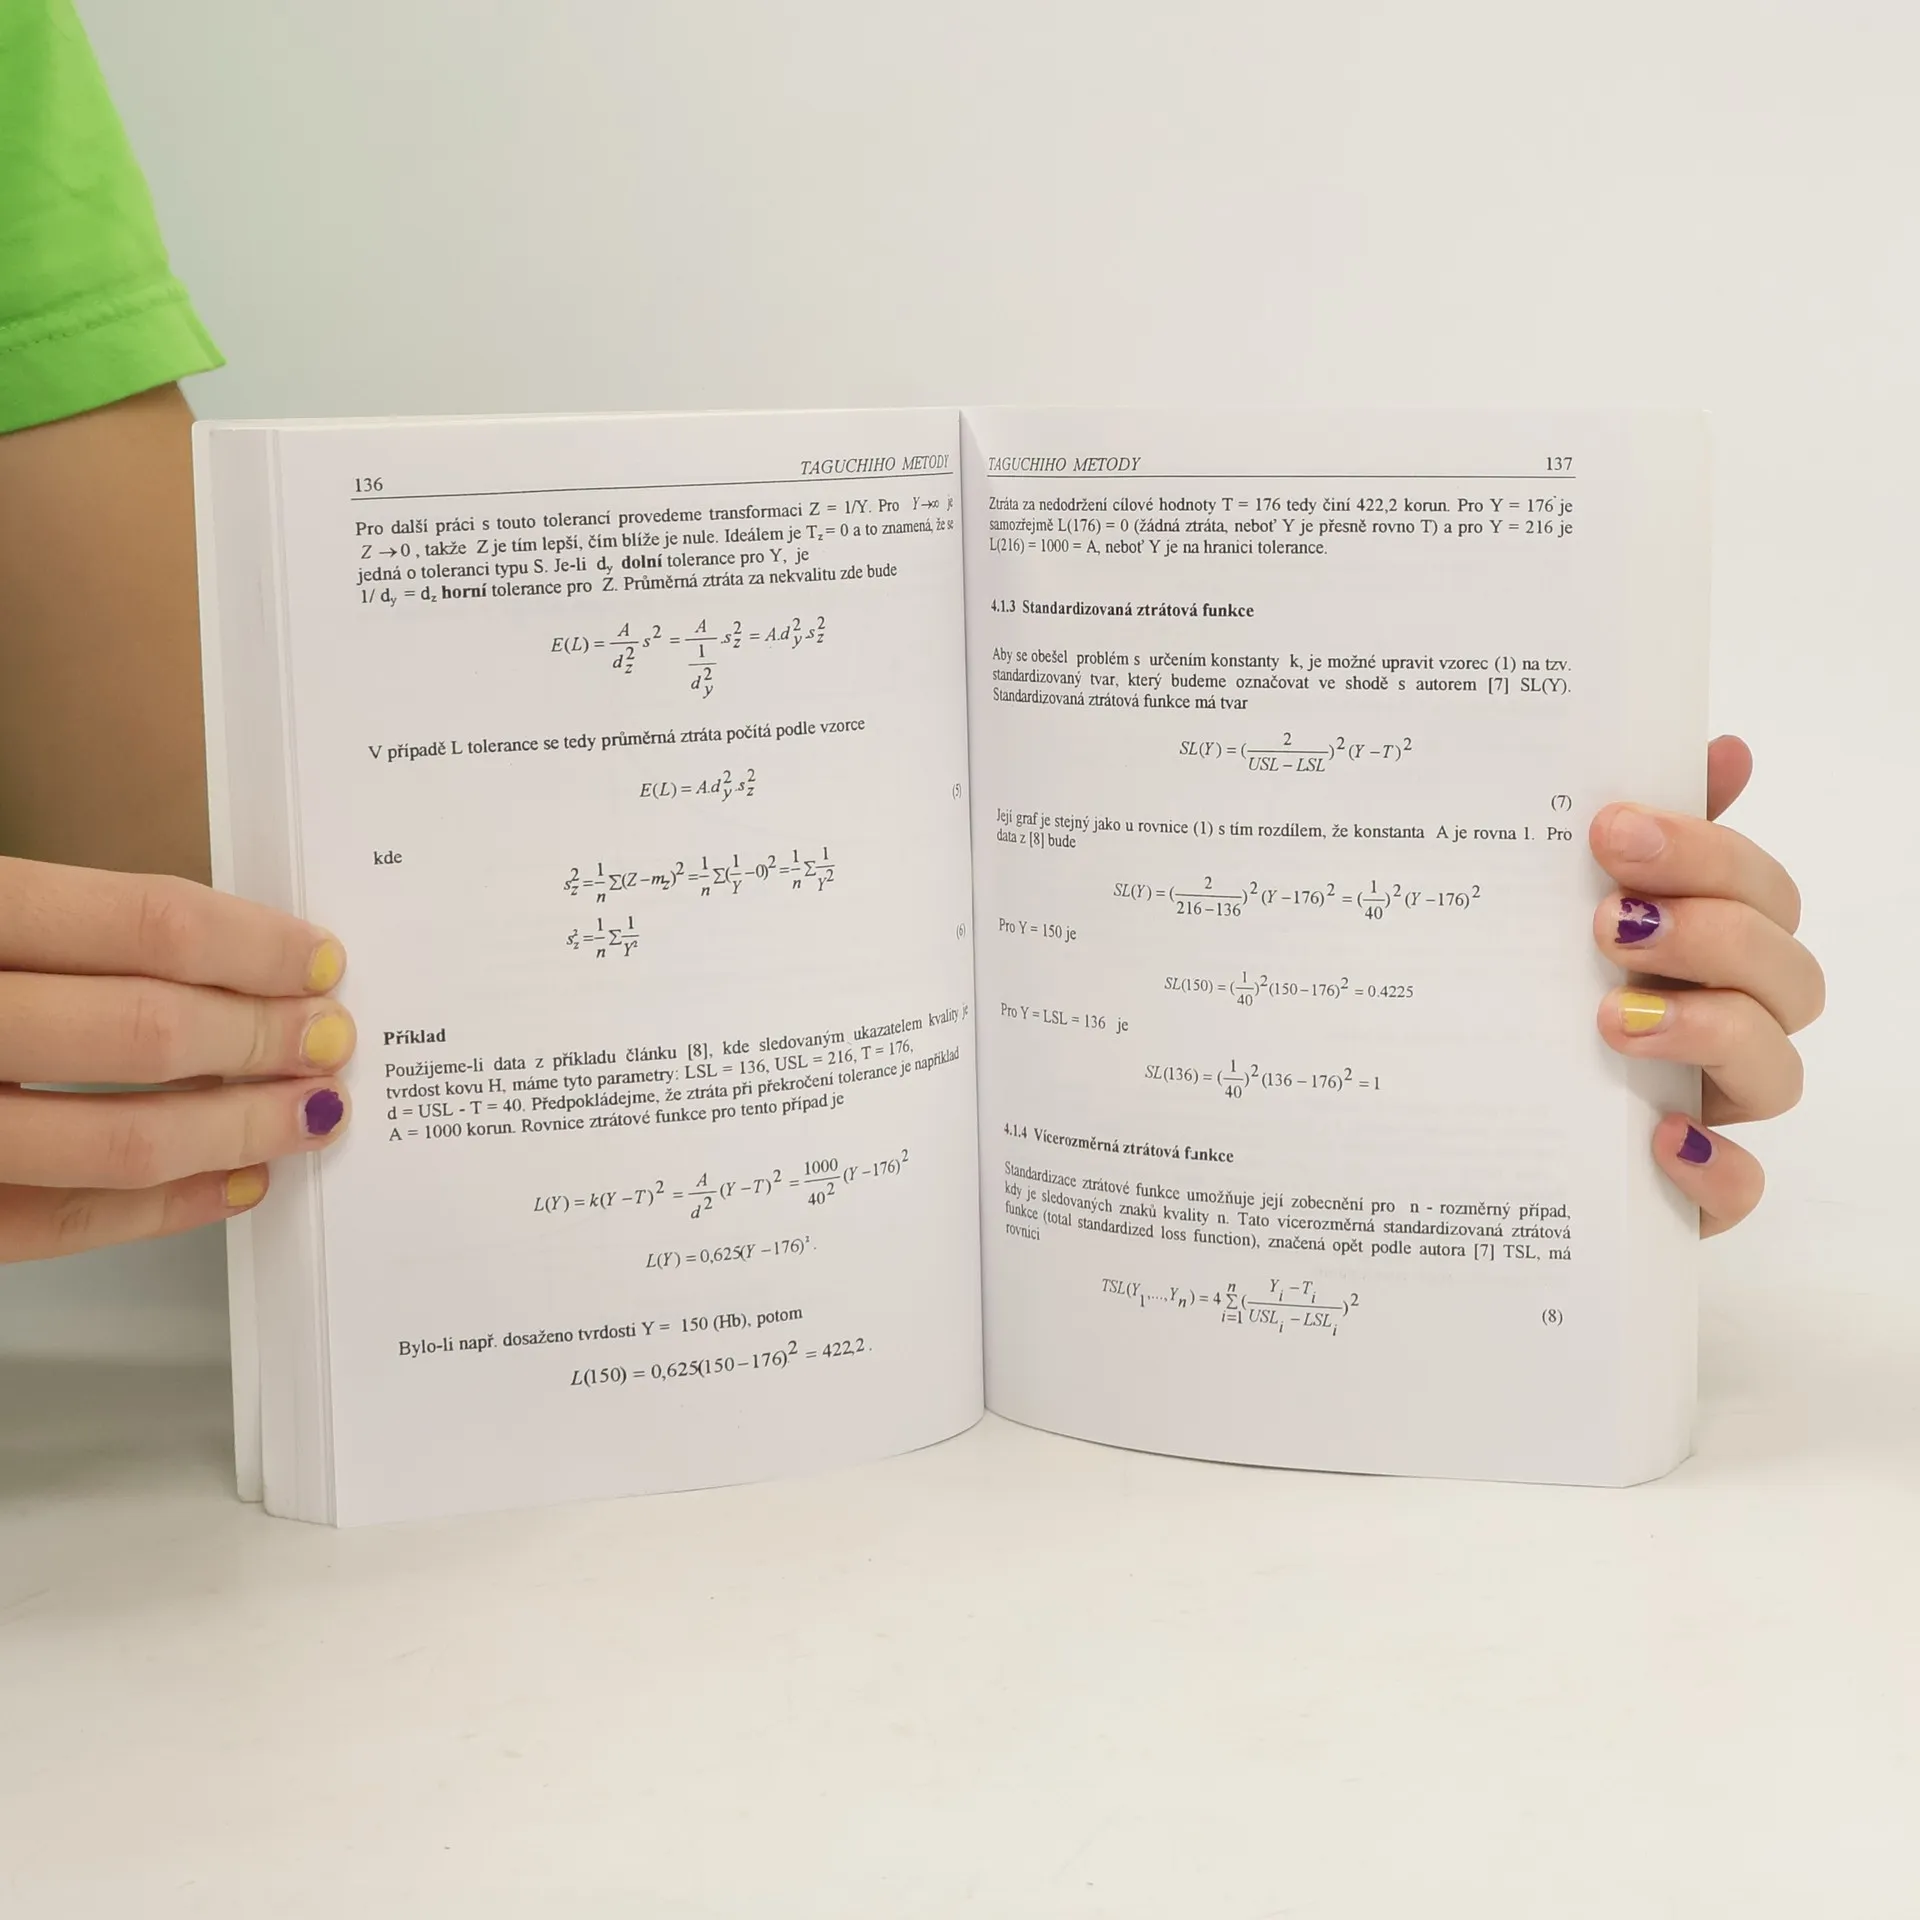 136
TAGUCHIHO METODY
Pro další práci s touto tolerancí provedeme transformaci Z = 1/Y. Pro Y→∞ je
Z →0 , takže Z je tím lepší, čím blíže je nule. Ideálem je T_z = 0 a to znamená, že se
jedná o toleranci typu S. Je-li d_y dolní tolerance pro Y, je
1/ d_y = d_z horní tolerance pro Z. Průměrná ztráta za nekvalitu zde bude
E(L) = \frac{A}{d_z^2} s^2 = \frac{A}{\frac{1}{d_y^2}} .s_z^2 = A.d_y^2.s_z^2
V případě L tolerance se tedy průměrná ztráta počítá podle vzorce
E(L) = A.d_y^2.s_z^2 (5)
kde
s_z^2 = \frac{1}{n} Σ(Z – m_z)^2 = \frac{1}{n} Σ(\frac{1}{Y} – 0)^2 = \frac{1}{n} Σ \frac{1}{Y^2}
s_z^2 = \frac{1}{n} Σ \frac{1}{Y^2} (6)
Příklad
Použijeme-li data z příkladu článku [8], kde sledovaným ukazatelem kvality je
tvrdost kovu H, máme tyto parametry: LSL = 136, USL = 216, T = 176,
d = USL - T = 40. Předpokládejme, že ztráta při překročení tolerance je například
A = 1000 korun. Rovnice ztrátové funkce pro tento případ je
L(Y) = k(Y – T)^2 = \frac{A}{d^2} (Y – T)^2 = \frac{1000}{40^2} (Y – 176)^2
L(Y) = 0,625(Y – 176)^2.
Bylo-li např. dosaženo tvrdosti Y = 150 (Hb), potom
L(150) = 0,625(150 – 176)^2 = 422,2.
TAGUCHIHO METODY
137
Ztráta za nedodržení cílové hodnoty T = 176 tedy činí 422,2 korun. Pro Y = 176 je
samozřejmě L(176) = 0 (žádná ztráta, neboť Y je přesně rovno T) a pro Y = 216 je
L(216) = 1000 = A, neboť Y je na hranici tolerance.
4.1.3 Standardizovaná ztrátová funkce
Aby se obešel problém s určením konstanty k, je možné upravit vzorec (1) na tzv.
standardizovaný tvar, který budeme označovat ve shodě s autorem [7] SL(Y).
Standardizovaná ztrátová funkce má tvar
SL(Y) = (\frac{2}{USL – LSL})^2 (Y – T)^2
(7)
Její graf je stejný jako u rovnice (1) s tím rozdílem, že konstanta A je rovna 1. Pro
data z [8] bude
SL(Y) = (\frac{2}{216 – 136})^2 (Y – 176)^2 = (\frac{1}{40})^2 (Y – 176)^2
Pro Y = 150 je
SL(150) = (\frac{1}{40})^2 (150 – 176)^2 = 0.4225
Pro Y = LSL = 136 je
SL(136) = (\frac{1}{40})^2 (136 – 176)^2 = 1
4.1.4 Vícerozměrná ztrátová funkce
Standardizace ztrátové funkce umožňuje její zobecnění pro n - rozměrný případ,
kdy je sledovaných znaků kvality n. Tato vícerozměrná standardizovaná ztrátová
funkce (total standardized loss function), značená opět podle autora [7] TSL, má
rovnici
TSL(Y_1,...,Y_n) = 4 \sum_{i=1}^{n} (\frac{Y_i – T_i}{USL_i – LSL_i})^2 (8)